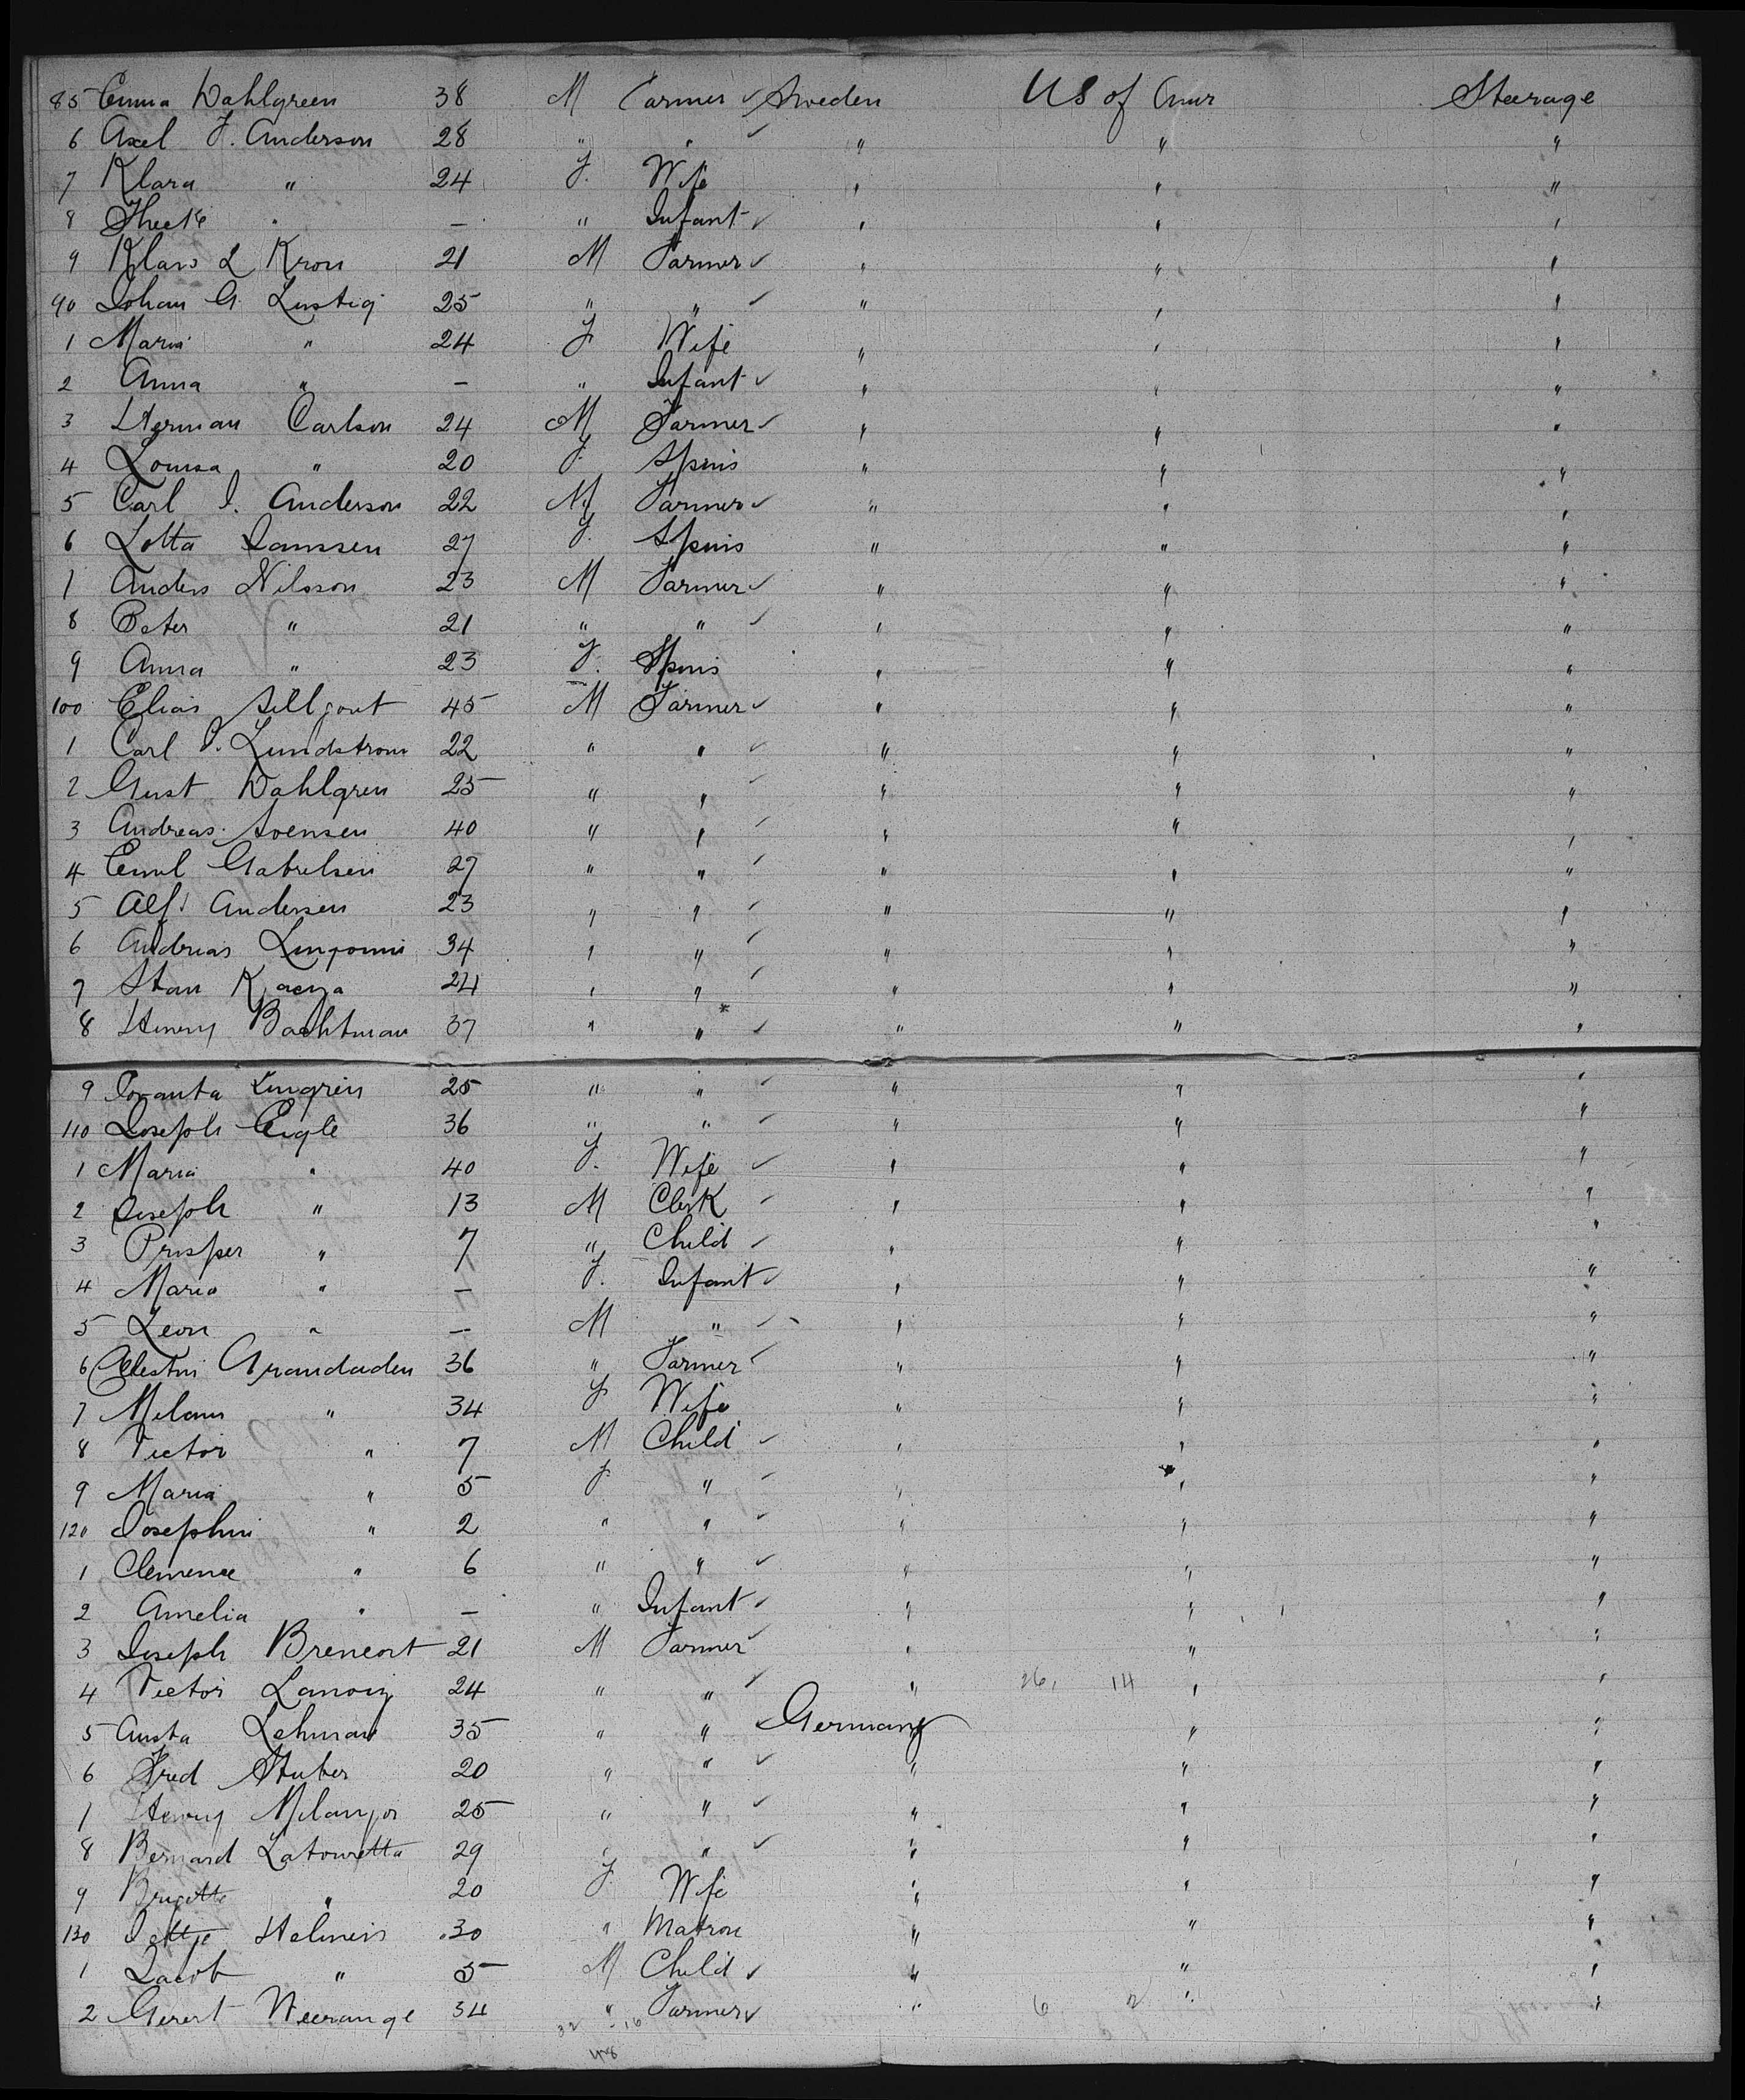 85 Emma Dahlgreen 38 M Farmer ✓ Sweden US of Amr Steerage
6 Axel F. Anderson 28 " " ✓ " " "
7 Klara " 24 F. Wife " " "
8 " — " Infant ✓ " " "
9 Klars L Kron 21 M Farmer ✓ " " "
90 Johan G Lustig 25 " " ✓ " " "
1 Maria " 24 F Wife " " "
2 Anna " — " Infant ✓ " " "
3 Herman Carlson 24 M Farmer ✓ " " "
4 Louisa " 20 F. Spins " " "
5 Carl J. Anderson 22 M Farmer ✓ " " "
6 Lotta Janssen 27 F. Spins " " "
7 Anders Nilsson 23 M Farmer ✓ " " "
8 Peter " 21 " " ✓ " " "
9 Anna " 23 F. Spins " " "
100 Elias 45 M Farmer ✓ " " "
1 Carl P. Lundstrom 22 " " ✓ " " "
2 Gust Dahlgren 25 " " ✓ " " "
3 Andreas Svensen 40 " " ✓ " " "
4 Emil Gabrelsen 27 " " ✓ " " "
5 Alf. Andersen 23 " " ✓ " " "
6 Andreas 34 " " ✓ " " "
7 Stan 24 " " ✓ " " "
8 Henry Bachtman 37 " " ✓ " " "
9 Lingrin 25 " " ✓ " " "
110 Joseph Eigle 36 " " ✓ " " "
1 Maria " 40 F. Wife ✓ " " "
2 Joseph " 13 M Clerk ✓ " " "
3 Prosper " 7 " Child ✓ " " "
4 Maria " — F. Infant ✓ " " "
5 Leon " — M " ✓ " " "
6 Celestin Grandaden 36 " Farmer ✓ " " "
7 Melann " 34 F Wife " " "
8 Victor " 7 M Child ✓ " " "
9 Maria " 5 F " ✓ " " "
120 Josephin " 2 " " ✓ " " "
1 Clemence " 6 " " ✓ " " "
2 Amelia " — " Infant ✓ " " "
3 Joseph Breneort 21 M Farmer ✓ " " "
4 Victor 24 " " ✓ " 26, 14 " "
5 Austa Lehman 35 " " Germany " "
6 Fred Stuber 20 " " ✓ " " "
7 Henry 25 " " ✓ " " "
8 Bernard Latouretta 29 " " ✓ " " "
9 Brigette " 20 F Wife " " "
130 Helmers 30 " Matron " " "
1 Jacob " 5 M Child ✓ " " "
2 Gerert Weerange 34 " Farmer ✓ " 6 2 " "
32 16
48